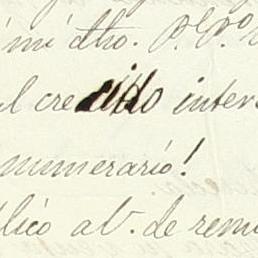 mi dho. P. P.º
el crecido inter
numerario!
lico al v. de remi